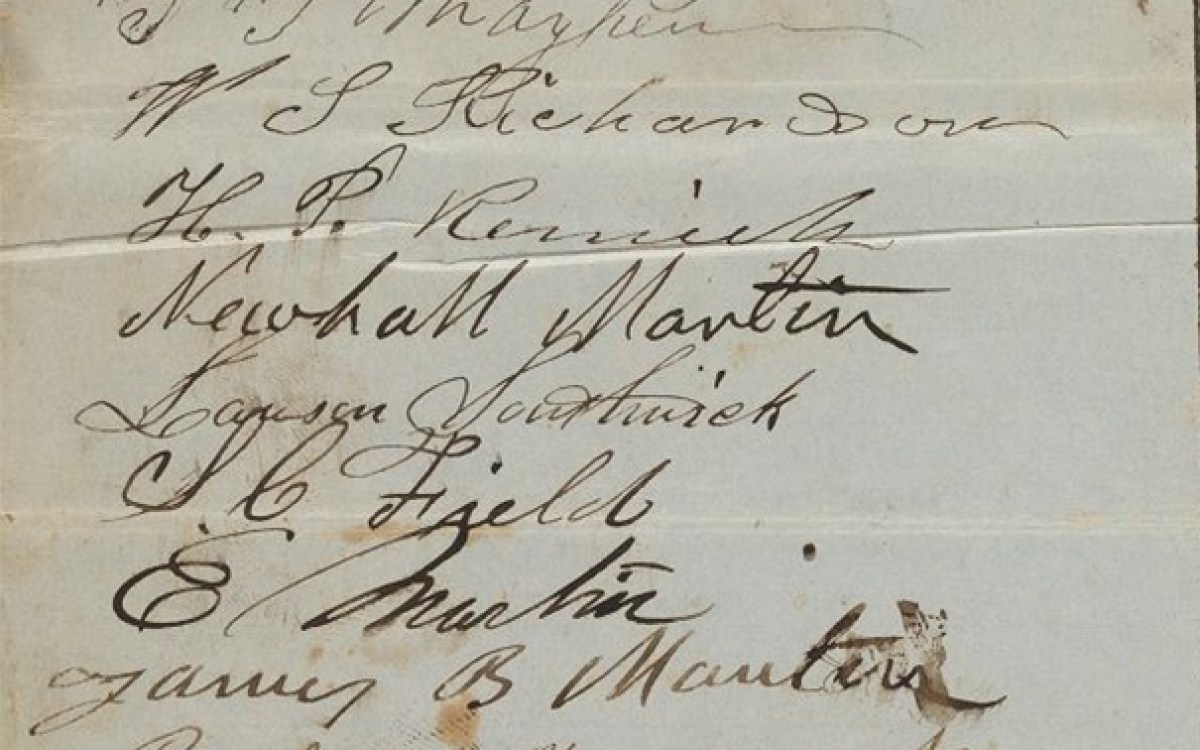 Mayhew
W S Richardson
H. P. Remick
Newhall Martin
Lawson Southwick
S. C Field
E Martin
James B Martin